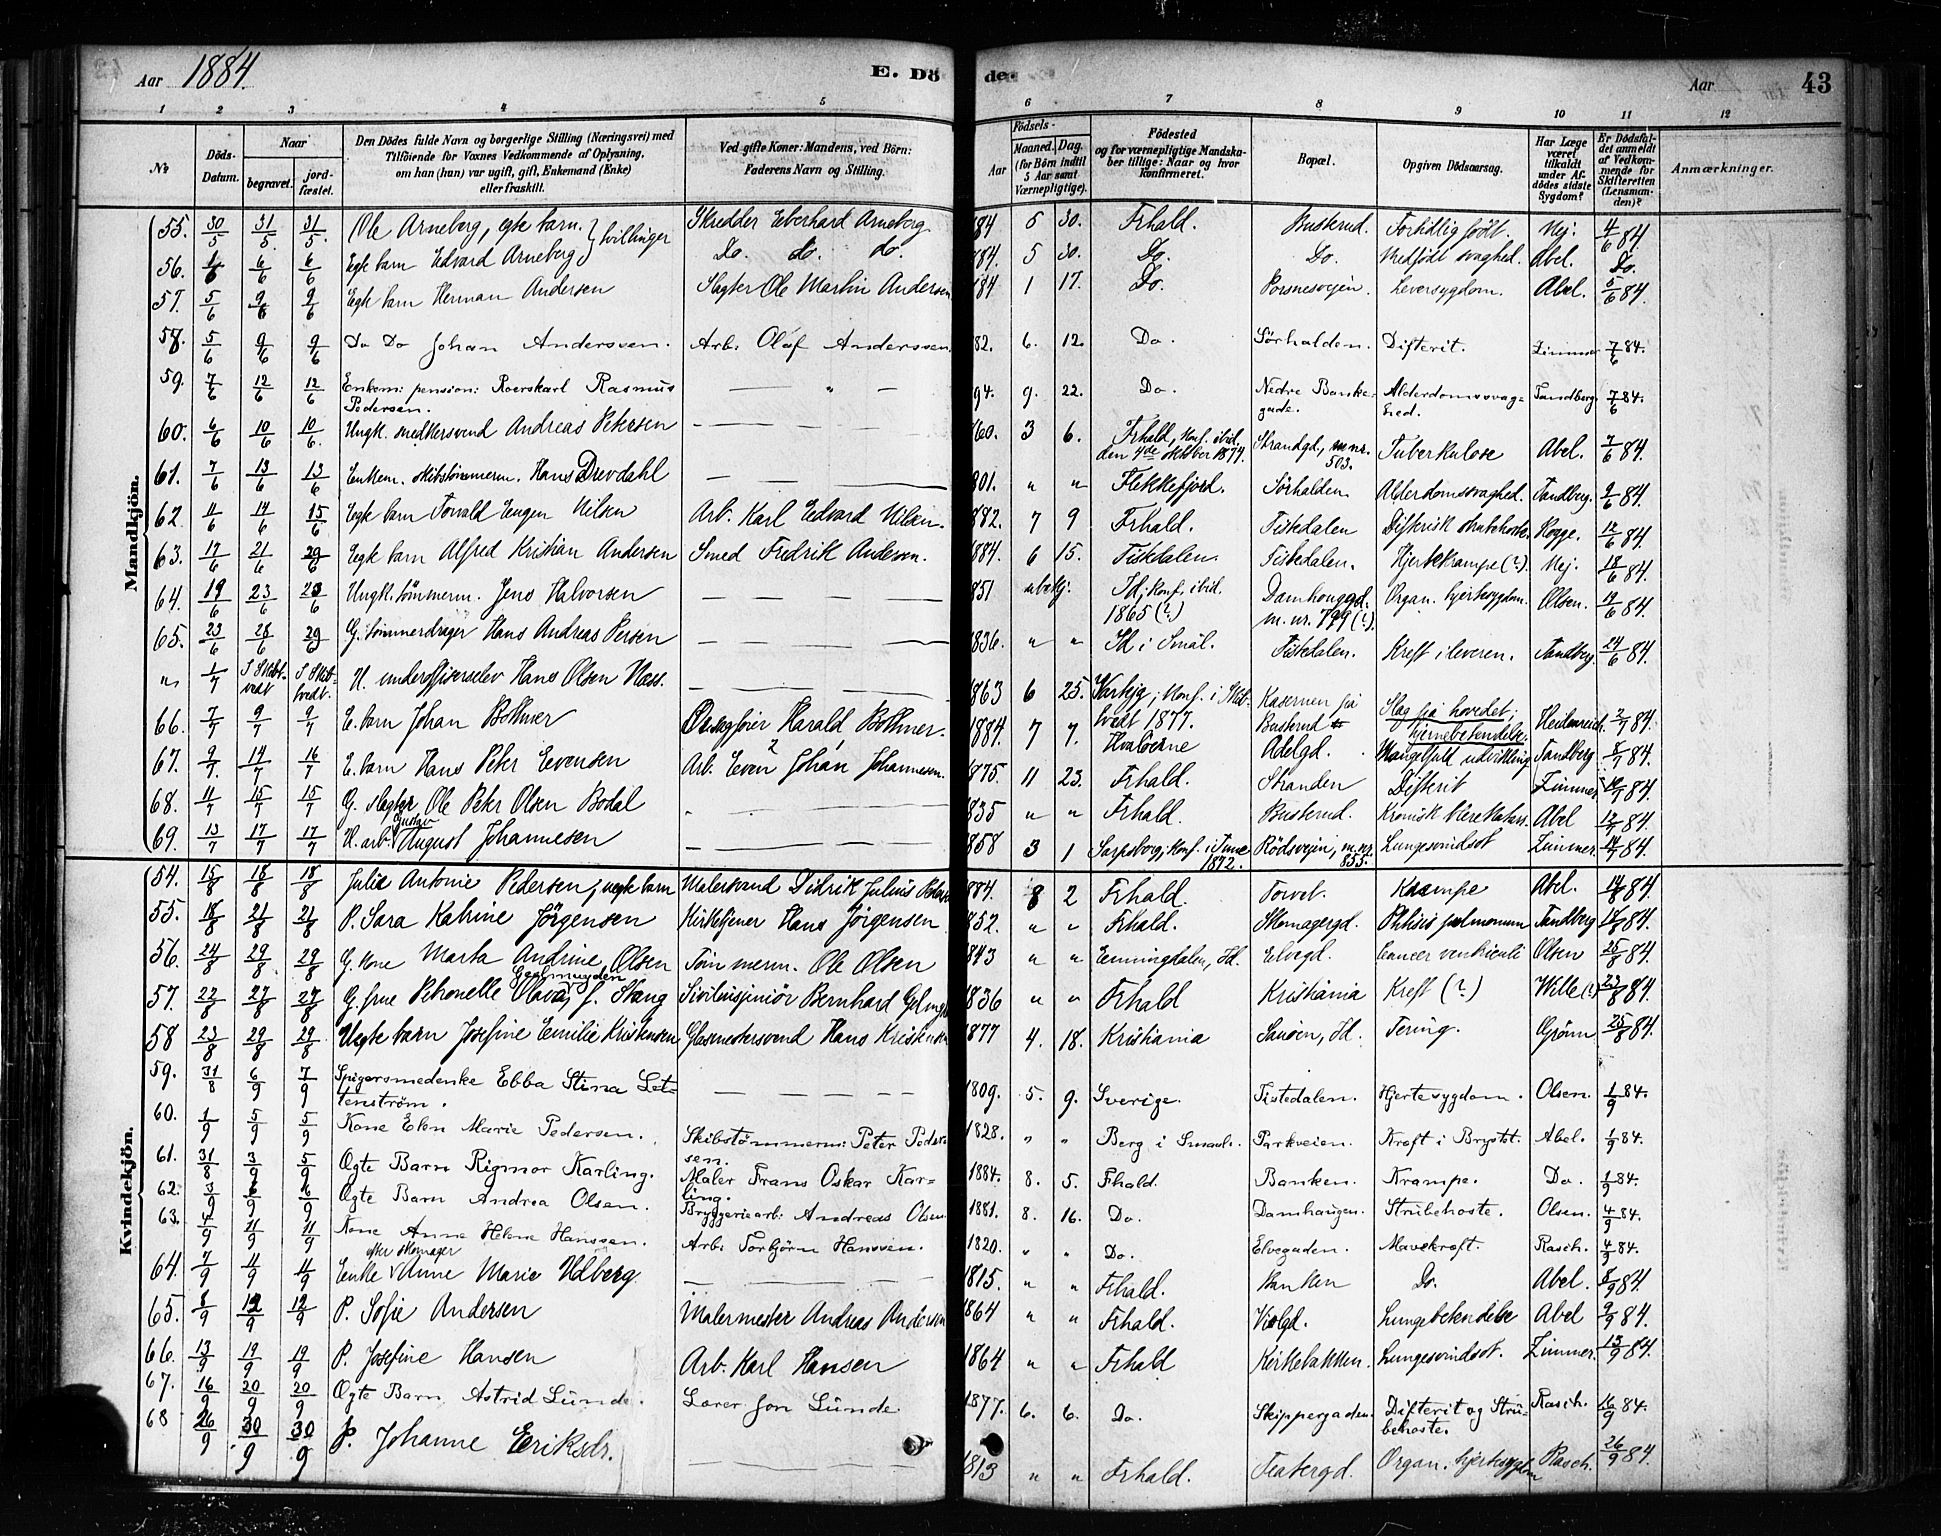 Aar 1884. E. Dö de. Aar 43
1 2 3 4 5 6 7 8 9 10 11 12
No
Döds-Datum.
Naar
begravet.
jordfæstet.
Den Dödes fulde Navn og borgerlige Stilling (Næringsvei) med
Tilföiende for Voxnes Vedkommende af Oplysning,
om han (hun) var ugift, gift, Enkemand (Enke)
eller fraskilt.
Ved gifte Koner: Mandens, ved Börn:
Faderens Navn og Stilling.
Födsels-
Aar
Maaned. Dag.
(for Börn indtil
5 Aar samt
Værnepligtige).
Födested
og for værnepligtige Mandskaber tillige: Naar og hvor
Konfirmeret.
Bopæl.
Opgiven Dödsaarsag.
Har Læge
været
tilkaldt
under Afdödes sidste
Sygdom?
Er Dödsfaldet anmeldt
af Vedkommende for
Skifteretten
(Lensmanden)?
Anmærkninger.
Mandkjön.
55. 30/5 31/5 31/5. Ole Arneberg, egte barn. } tvillinger Skredder Eberhard Arneberg 84 5 30. Frhald. Busterud. Fortidlig födt. Nej. 4/6 84.
56. 1/6 6/6 6/6 Egte barn Edvard Arneberg Do. do. do. 84. 5 30. Do. Do. Medfödt svaghed. Abel. Do.
57. 5/6 9/6 9/6 Egte barn Herman Andersen Slagter Ole Martin Andersen 84 1 17. Do. Porsnesvejen. Leversygdom. Abel. 5/6 84.
58. 5/6 9/6 9/6 Do Do Johan Anderssen. Arb. Olaf Anderssen. 82. 6. 12. Do. Sörhalden. Difterit. Zimmer 7/6 84.
59. 7/6 12/6 12/6 Enkem: pension: Roerskarl Rasmus
Pedersen. — " — 94. 9. 22. Do. Nedre Bankegade. Alderdomssvaghed. Tandberg 7/6 84.
60. 6/6 10/6 10/6. Ungk. smedkersvend Andreas Petersen 60. 3 6. Frhald, konf. ibid.
den 4de oktober 1874. Strandgd., m.nr.
503. Tuberkulose Abel. 7/6 84.
61. 7/6 13/6 13/6 Enkem. skibstömmerm. Hans Drevdahl 801. " " Flekkefjord. Sörhalden. Alderdomssvaghed. Tandberg. 9/6 84.
62. 11/6 14/6 15/6 Egte barn Torvald Eugen Nilsen Arb. Karl Edvard Nilsen. 882. 7 9 Frhald. Tistedalen Difterisk strubehoste. Hogge. 12/6 84.
63. 17/6 21/6 29/6 Egte barn Alfred Kristian Andersen Smed Fredrik Andersen. 1884. 6 15. Tistedalen. Tistedalen. Hjertekrampe (?). Nej. 18/6 84.
64. 19/6 23/6 23/6 Ungk. tömmerm. Jens Halvorsen 851 ubekj: Id; konf. ibid.
1865 (?) Damhouggd.
m. nr. 799 (?). Organ. hjertesygdom. Olsen. 19/6 84.
65. 23/6 28/6 29/6 G. tömmerdrager Hans Andreas Persen 1836. " " Id i Smål. Tistedalen. Kreft i leveren. Tandberg. 24/6 84.
" 1/7 I Skibtvedt I Skibtvedt. U. underofficerselev Hans Olsen Næss. 1863 6 25. Varteig; konf. i Skibtvedt 1877. Kasernen på
Busterud Slag på hovedet;
hjernebetendelse. Heidenreich. 2/7 84.
66. 7/7 9/7 9/7 E. barn Johan Bothner Ovrsagförer Harald Bothner. 1884. 7 7. Hvalöerne Adelgd. Mangelfuld udvikling Tandberg 8/7 84.
67. 9/7. 14/7 16/7 E. barn Hans Peter Evensen Arb. Even Johan Johannesen. 1875. 11 23. Frhald. Stranden Difterit Zimmer. 10/7 84.
68. 11/7 15/7 15/7 G. slagter Ole Peter Olsen Bodal 1835 " " Frhald. Busterud. Kronisk blerekatarr. Abel 12/7 84.
69. 13/7 17/7 17/7 U. arb. Gustav August Johannesen 1858 3 1 Sarpsborg; konf. i Tune
1872. Rödsvejen, m.nr.
855. Lungesvindsot Zimmer. 14/7 84.
Kvindekjön.
54. 15/8 18/8 18/8 Julie Antonie Pedersen, uegte barn Malersvend Didrik Julius Peders 1884. 8 2 Frhald. Torvet. Krampe Abel. 18/8 84.
55. 18/8 21/8 21/8 P. Sara Katrine Jörgensen Kirketjener Hans Jörgensen 1852. " " Frhald. Skomagergd. Phtisis pulmonum Tandberg 18/8 84.
56. 24/8 29/8 29/8 G. kone Marta Andrine Olsen Tömmerm. Ole Olsen 1843 " " Enningdalen, Id. Elvegd. Cancer ventriculi Olsen 25/8 84.
57. 22/8 27/8 27/8 G. frue Petronelle Olava Gelmuyden f. Stang Sivilinsjeniör Bernhard Gelmuyd 1836 " " Frhald Kristiania Kreft (?) Wille (?) 23/8 84.
58 23/8 29/8 29/8 Uegte barn Josefine Emilie Kristensen Glasmestersvend Hans Kristensen 1877 4. 18. Kristiania Sauöen, Id. Tering. Grönn 25/8 84.
59. 31/8 6/9 7/9 Spigersmedenke Ebba Stina Lettenström. 1809. 5. 9. Sverige. Tistedalen. Hjertesygdom. Olsen. 1/9 84.
60. 1/9 5/9 5/9 Kone Elen Marie Pedersen. Skibstömmerm: Peter Pedersen. 1828. " " Berg i Smaal. Parkveien. Kræft i Brystet. Abel. 1/9 84.
61. 31/8 3/9 5/9 Ægte Barn Rigmor Karling. Maler Frans Oskar Karling. 1884. 8. 5. Fhald. Banken. Krampe. Do. 1/9 84.
62. 3/9 6/9 6/9 Ægte Barn Andrea Olsen. Bryggeriearb: Andreas Olsen 1881. 8. 16. Do. Damhaugen. Strubehoste. Olsen. 4/9 84.
63. 4/9 11/9 11/9 Kone Anne Helene Hanssen. Arb: Torbjörn Hanssen. 1820. " " Do. Elvegaden. Mavekræft. Rasch. 4/9 84.
64. 7/9 11/9 11/9 Enke efter skomager Anne Marie Udberg. 1815. " " Frhald. Banken Do. Abel. 8/9 84.
65. 8/9 12/9 12/9 P. Sofie Andersen Malermester Andreas Andersen 1864 " " Frhald. Violgd. Lungebetendelse Abel 9/9 84.
66. 13/9 19/9 19/9 P. Josefine Hansen Arb. Karl Hansen 1864 " " Frhald Kirkebakken. Lungesvindsot. Zimmer. 13/9 84.
67. 16/9 20/9 20/9 Ægte Barn Astrid Lunde. Lærer Jon Lunde 1877. 6. 6. Do. Skippergaden. Difterit og Strubehoste. Rasch. 16/9 84.
68 26/9 30/9 30/9 P. Johanne Eriksdr. 1813 " " Frhald. Teatergd. Organ. hjertesygdom Rasch. 26/9 84.